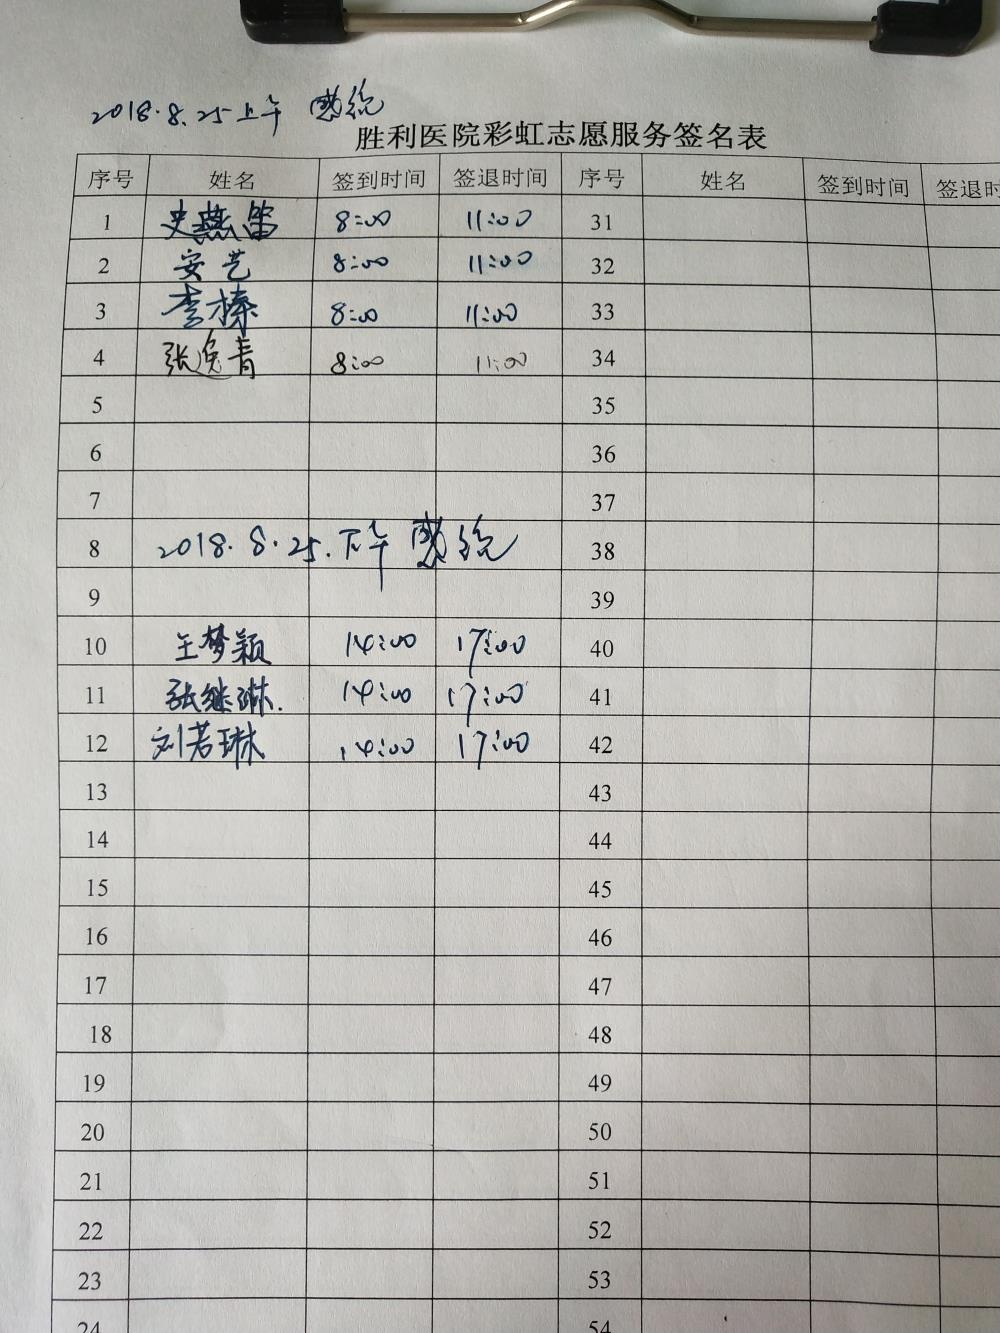 2018.8.25上午 感统
胜利医院彩虹志愿服务签名表
序号 姓名 签到时间 签退时间 序号 姓名 签到时间 签退时
1 史燕笛 8:00 11:00 31
2 安艺 8:00 11:00 32
3 李榛 8:00 11:00 33
4 张逸青 8:00 11:00 34
5 35
6 36
7 37
8 2018.8.25.下午 感统 38
9 39
10 王梦颖 14:00 17:00 40
11 张继琳. 14:00 17:00 41
12 刘若琳 14:00 17:00 42
13 43
14 44
15 45
16 46
17 47
18 48
19 49
20 50
21 51
22 52
23 53
24 54